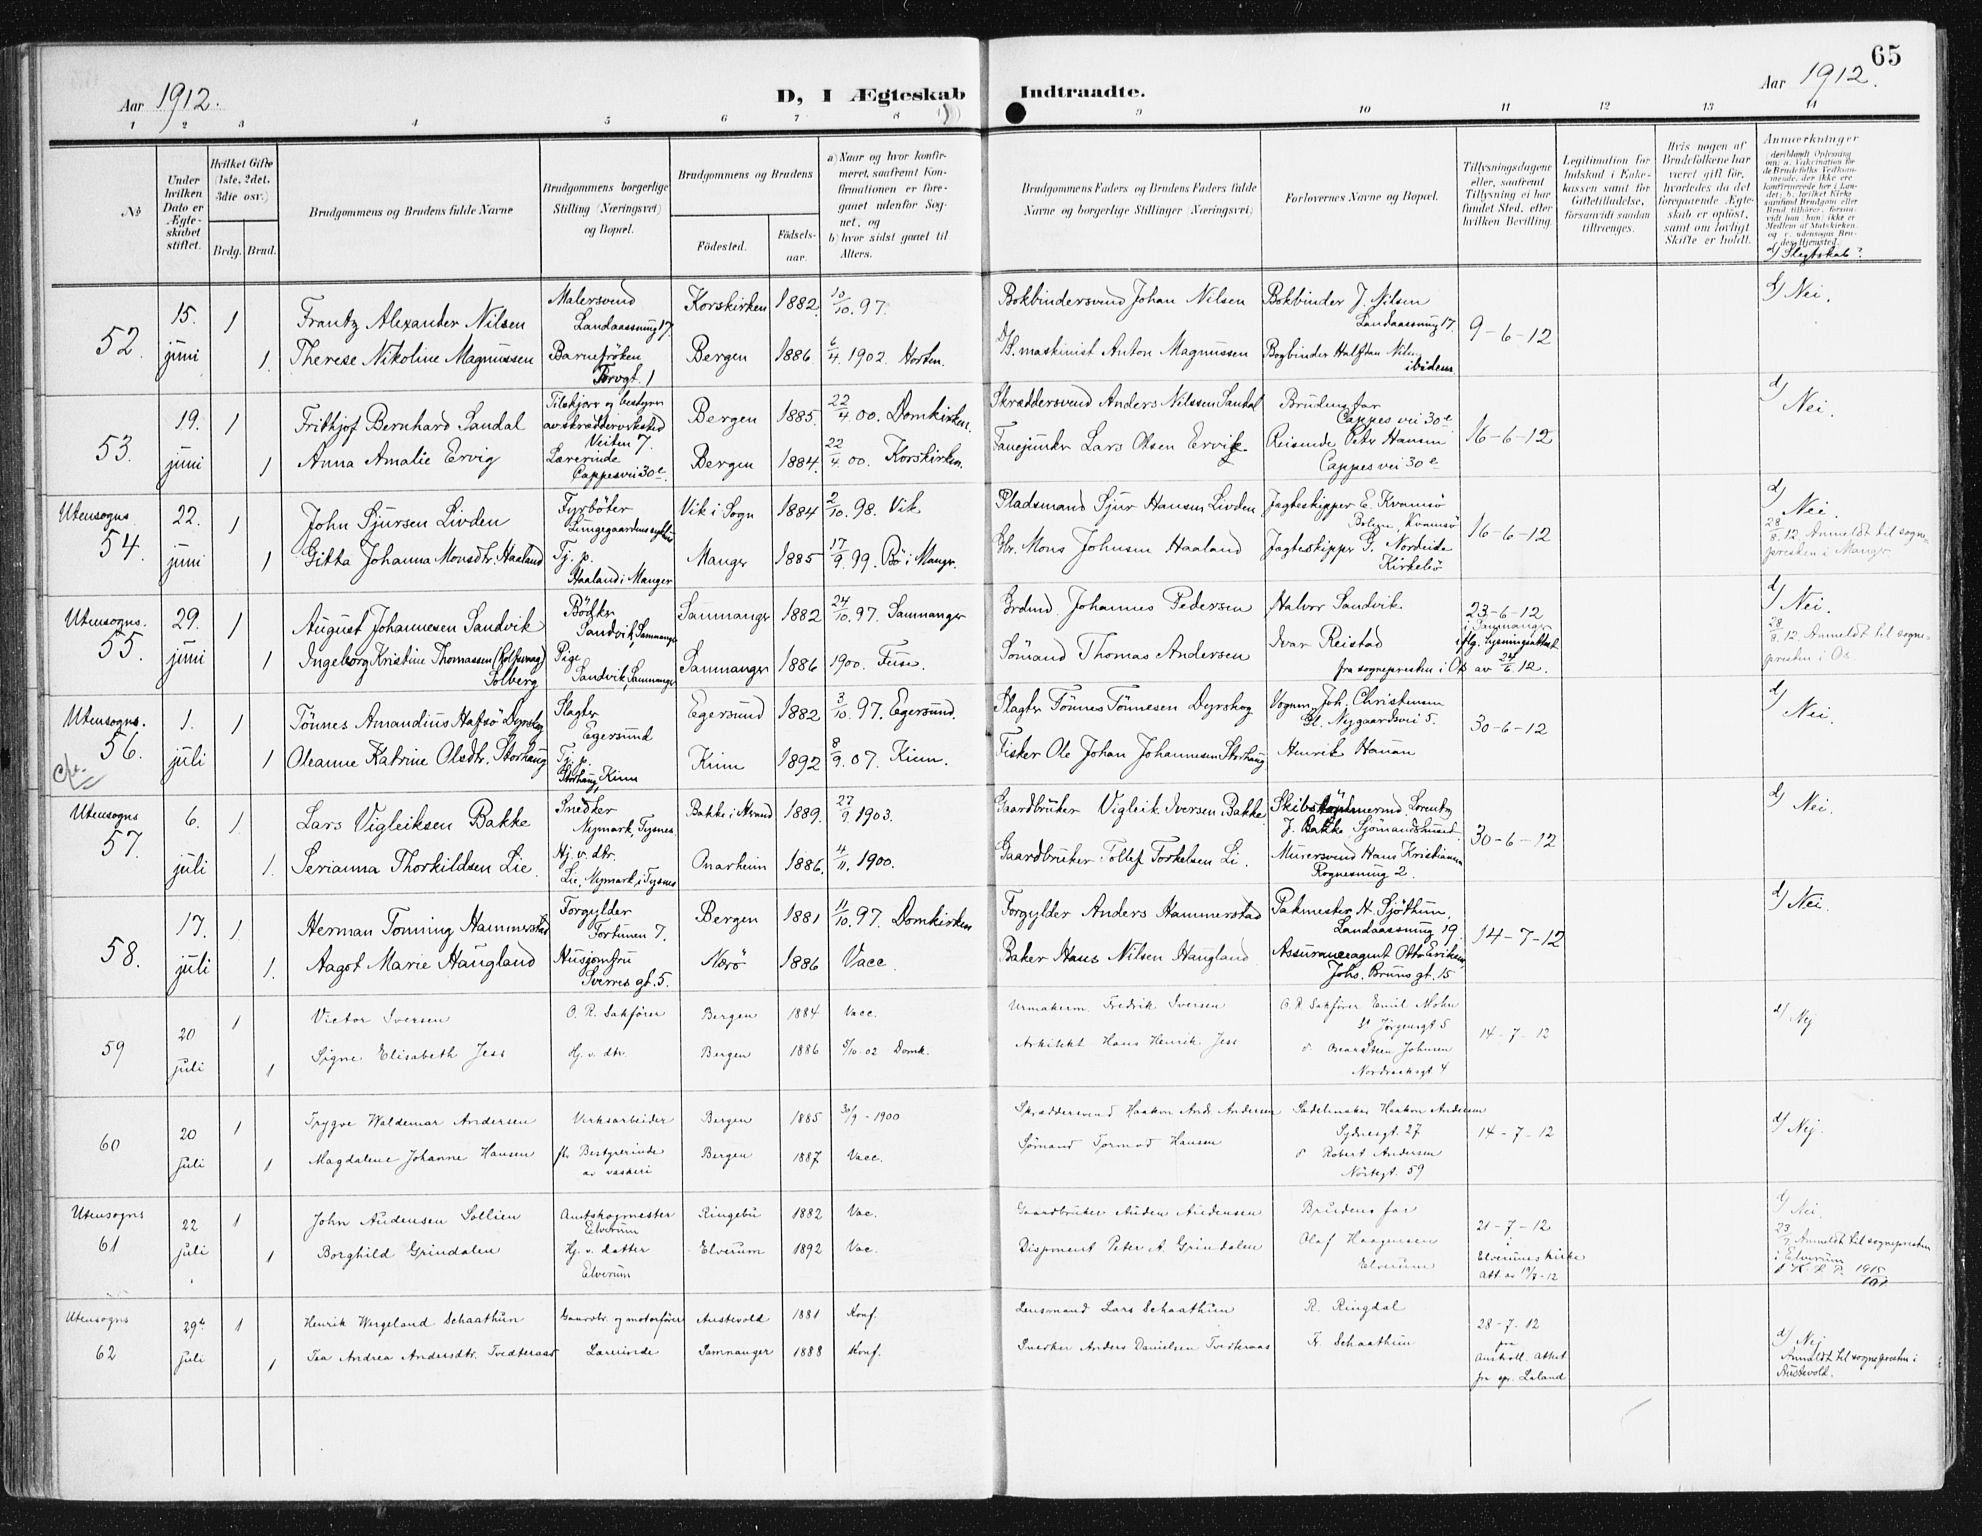 65
Aar 1912.
D, I Ægteskab Indtraadte.
Aar 1912.
1 2 3 4 5 6 7 8 9 10 11 12 13 14
No
Under hvilken Dato er Ægteskabet stiftet.
Hvilket Gifte (1ste, 2det, 3die osv.)
Brdg. Brud.
Brudgommens og Brudens fulde Navne
Brudgommens borgerlige Stilling (Næringsvei) og Bopæl.
Brudgommens og Brudens
Födested.
Födselsaar.
a) Naar og hvor konfirmeret, saafremt Konfirmationen er foregaaet udenför Sognet, og
b) hvor sidst gaaet til Alters.
Brudgommens Faders og Brudens Faders fulde Navne og borgerlige Stillinger (Næringsvei)
Forlovernes Navne og Bopæl.
Tillysningsdagene eller, saafremt Tillysning ei har fundet Sted, efter hvilken Bevilling.
Legitimation for Indskud i Enkekassen samt for Giftetilladelse, forsaavidt saadan tiltrænges.
Hvis nogen af Brudefolkene har været gift för, hvorledes da det foregaaende Ægteskab er oplöst, samt om lovligt Skifte er holdt.
Anmærkninger
d/ Slegtskab?
52.
15. juni
1
Frantz Alexander Nilsen
Malersvend
Landaassnung 17.
Korskirken 1882 10/10 97.
Bokbindersvend Johan Nilsen
Bokbinder J. Nilsen
Landaassnung 17.
9-6-12
d/ Nei.
1.
Therese Nikoline Magnussen
Barnefröken
Torvgt. 1
Bergen 1886. 6/4. 1902. Horten.
maskinist Anton Magnussen
Bogbinder Halfdan Nilsen
ibidem.
53.
19. juni
1
Frithjof Bernhard Sandal
Tilskjærer og bestyrer
av skrædderverksted
Veiten 7.
Bergen 1885. 22/4 00. Domkirken.
Skræddersvend Anders Nilssen Sandal
Brudens far
Cappes vei 30e
16-6-12
d/ Nei.
1
Anna Amalie Ervig
Lærerinde
Cappesvei 30e.
Bergen 1884. 22/4 00. Korskirken.
Fanejunker Lars Olsen Ervik
Reisende Petr Hansen
Cappes vei 30e
Utensogns
54.
22. juni
1
John Sjursen Livden
Fyrböter
Vik i Sogn 1884 2/10. 98. Vik
Pladsmand Sjur Hansen Livden
Jagteskipper E. Kvamsö
Kvamsö
16-6-12
d/ Nei.
28/8.12. Anmeldt til sognepresten i Manger
1
Gitta Johanna Monsdtr. Haaland
Tj. p.
Haaland i Manger
Manger 1885 17/9. 99. Bö i Mangr.
Gbr. Mons Johnsen Haaland
Jagteskipper G. Nordeide
Kirkebö
Utensogns.
55.
29. juni
1
August Johannesen Sandvik
Bödker
Sandvik, Samnanger
Samnanger 1882 24/10. 97. Samnanger
Grdmd. Johannes Pedersen
Halvor Sandvik.
23-6-12
i Samnanger
iflg. lysningsattest
fra sognepresten i Os av 24/6. 12.
d/ Nei.
28/8. 12. Anmeldt til sognepresten i Os.
1
Ingeborg Kristine Thomassen (Rolfsvaag)
Solberg
Pige
Sandvik, Samnanger
Samnanger 1886 1900. Fuse.
Sömand Thomas Andersen
Ivar Reistad
Utensogns.
56.
1. juli
1
Tönnes Amandius Hafsö Dyrskog
Slagter
Egersund
Egersund 1882 3/10. 97. Egersund.
Slagter Tönnes Tönnesen Dyrskog
Vognm. Joh. Christensen
Gl. Nygaardsvei 5.
30-6-12
d/ Nei.
1
Oleanne Katrine Olsdtr. Storhaug
Tj. p.
Storhaug, Kinn
Kinn 1892 8/9. 07. Kinn.
Fisker Ole Johan Johannesen Storhaug
Henrik Hauan
Utensogns
57.
6. juli
1.
Lars Vigleiksen Bakke
Snedker
Nymark, Tysnes.
Bakke i Strand 1889. 27/9. 1903.
Gaardbruker Vigleik Iversen Bakke
Lorentz
J. Bakke, Sjömandshuset.
30-6-12
d/ Nei.
1.
Serianna Thorkildsen Lie.
Hj. v. dtr.
Lie, Nymark, i Tysnes
Onarheim 1886. 4/11. 1900.
Gaardbruker Tollef Torkelsen Li.
Murersvend Hans Kristiansen
Rognesmug 2.
58.
17. juli
1.
Herman Tonning Hammerstad
Forgylder
Fortunen 7.
Bergen 1881 11/10. 97. Domkirken
Forgylder Anders Hammerstad
Pakmester H. Sjöthun,
Landaassnung 19.
14-7-12
d/ Nei.
1.
Aagot Marie Haugland
Husjomfru
Sverres gt. 5.
Nærö 1886 Vacc.
Baker Hans Nilsen Haugland.
Assuranceagent Otto Eriksen,
Johs. Bruns gt. 15
59
20 juli
1
Victor Iversen
O. R. Sakförer
Bergen 1884 Vacc.
Urmakerm. Fredrik Iversen
O. R Sakförer Emil Mohn
St Jörgensgt 5
14-7-12
d/ Nej
1
Signe Elisabeth Jess
Hj. v. dtr.
Bergen 1886 5/10-02 Domk.
Arkitekt Hans Henrik Jess
Oscar Steen Johnsen
Nordnæsgt 4
60
20 juli
1
Trygve Waldemar Andersen
Verksarbeider
Bergen 1885 30/9-1900
Skræddersvend Haakon Andr. Andersen
Sadelmaker Haakon Andersen
Sydnesgt. 27
14-7-12
d/ Nej.
1
Magdalene Johanne Hansen
fh. Bestyrerinde
av vaskeri
Bergen 1887 Vacc.
Sømand Tormod Hansen
Robert Andersen
Nöstegt. 59
Utensogns
61
22 juli
1
John Audensen Sollien
Amtskogmester
Elverum
Ringebu 1882 Vac.
Gaardbruker Auden Audensen
Brudens far
21-7-12
i
Elverums kirke
Att. av 19/7-12
d/ Nei.
23/7. Anmeldt til sognepresten
i Elverum
1915
1
Borghild Grindalen
Hj. v. datter
Elverum
Elverum 1892 Vac.
Disponent Peter A. Grindalen
Olaf Haagensen
Elverum
Utensogns
62
29de juli
1
Henrik Wergeland Schaathun
Gaardbr. og motorfører
Austevold 1881 Konf.
Lensmand Lars Schaathun
R. Ringdal
28-7-12
d/ Nej
Anmeldt til sognepresten i
Austevold.
1
Tea Andrea Andersdtr. Tvedteraas
Lærerinde
Samnanger 1888 Konf.
Snedker Anders Danielsen Tvedteraas
Fr. Schaathun